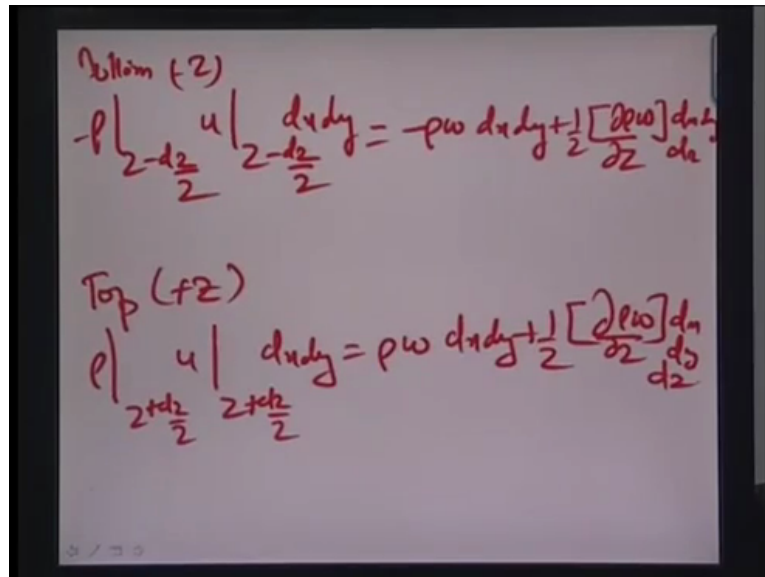 Bottom (-Z)
-ρ|_{z-dz/2} u|_{z-dz/2} dxdy = -ρω dxdy + 1/2 [∂ρω/∂z] dxdy dz
Top (+Z)
ρ|_{z+dz/2} u|_{z+dz/2} dxdy = ρω dxdy + 1/2 [∂ρω/∂z] dx dy dz